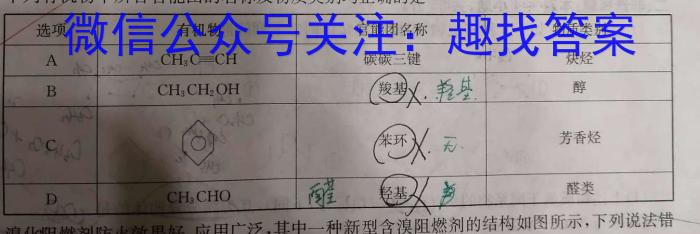 下列有机物中所含官能团的名称及物质类别均正确的是
微信公众号关注：趣找答案
选项 有机物 官能团名称 物质类别
A CH₃C≡CH 碳碳三键 炔烃
B CH₃CH₂OH 羧基 羟基 醇
C 苯环 无 芳香烃
D CH₃CHO 醛 羟基 醛类
溴化阻燃剂防火效果好，应用广泛，其中一种新型含溴阻燃剂的结构如图所示，下列说法错